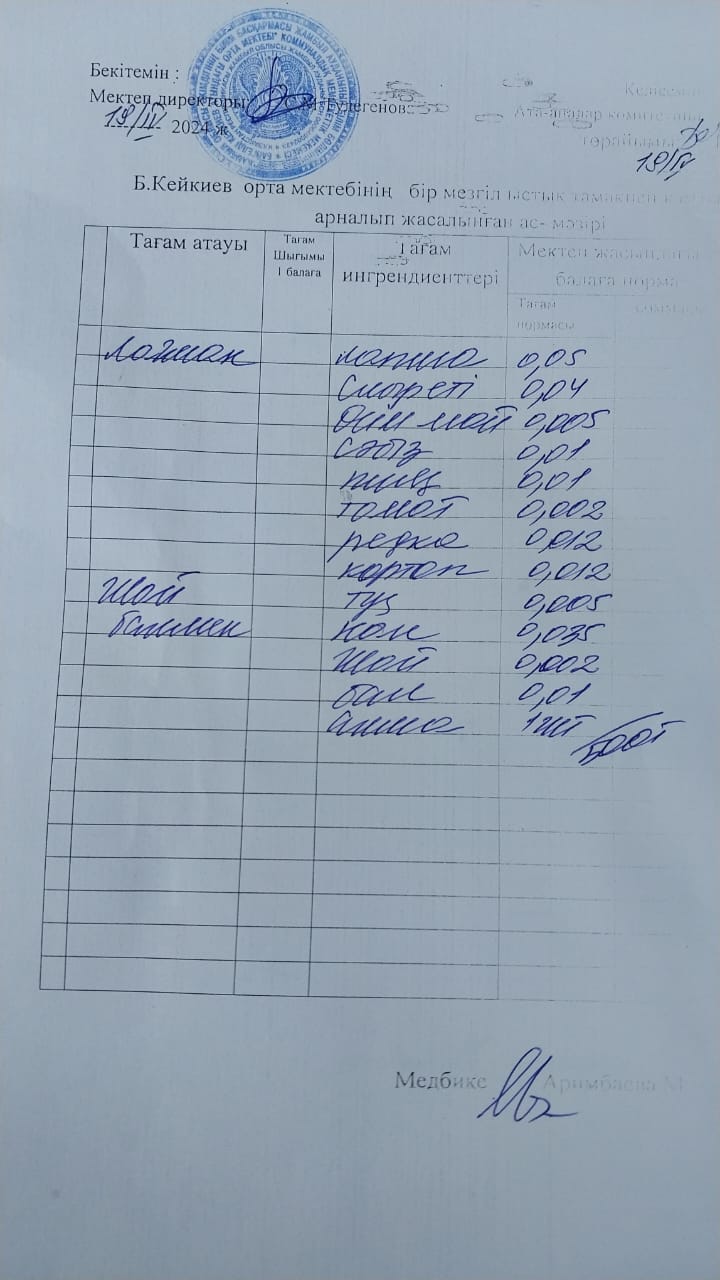 Бекітемін :
Мектеп директоры: С.М.Тулегенов
Келісемін
Ата-аналар комитетінің
төрайымы
19/IV 2024 ж
19/IV
Б.Кейкиев орта мектебінің бір мезгіл ыстық тамақпен
арналып жасалынған ас- мәзірі
Тағам атауы
Тағам
Шығымы
1 балаға
Тағам
ингрендиенттері
Мектеп жасындағы
балаға норма
Тағам
нормасы
Лагман лапша 0,05
Сиыр еті 0,04
Өсім май 0,005
Сәбіз 0,01
пияз 0,01
томат 0,002
редка 0,012
картоп 0,012
Шай тұз 0,005
балмен нан 0,035
Шай 0,002
бал 0,01
алма 1шт
Медбике Аримбаева М